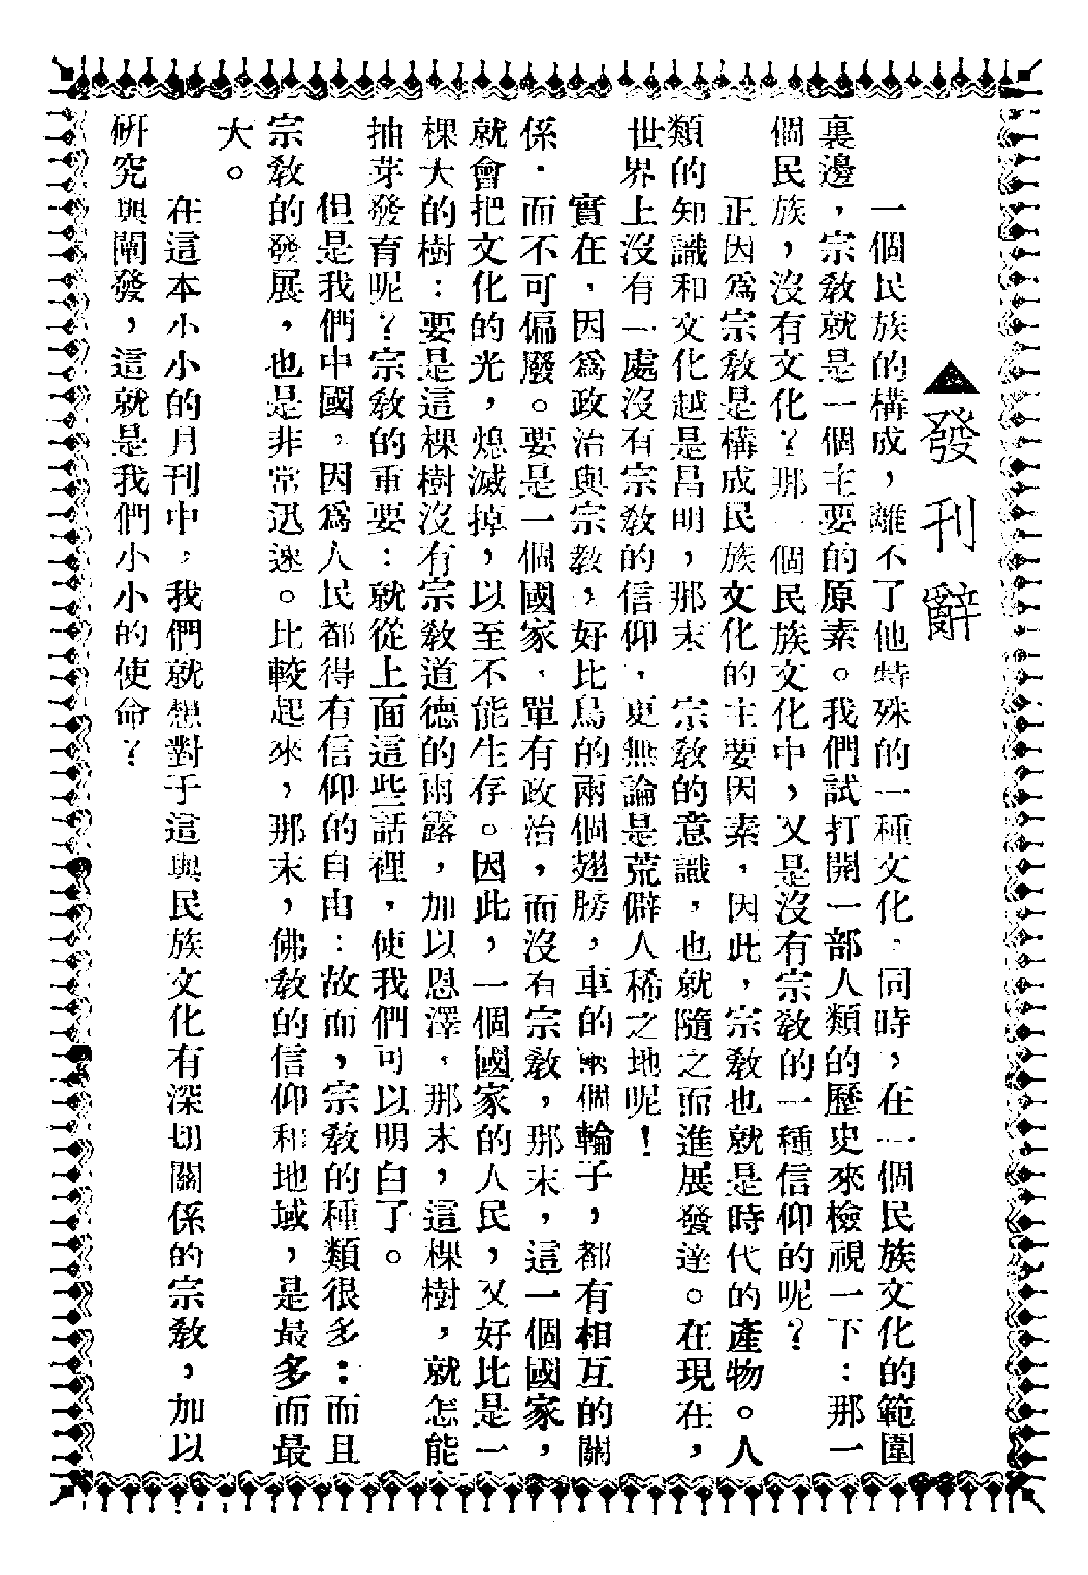 ▲發刊辭
一個民族的構成，離不了他特殊的一種文化．同時，在一個民族文化的範圍
裏邊，宗敎就是一個主要的原素。我們試打開一部人類的歷史來檢視一下：那一
個民族，沒有文化？那一個民族文化中，又是沒有宗敎的一種信仰的呢？
正因爲宗敎是構成民族文化的主要因素，因此，宗敎也就是時代的產物。人
類的知識和文化越是昌明，那末 宗敎的意識，也就隨之而進展發達。在現在，
世界上沒有一處沒有宗敎的信仰，更無論是荒僻人稀之地呢！
實在，因爲政治與宗教，好比鳥的兩個翅膀，車的兩個輪子，都有相互的關
係．而不可偏廢。要是一個國家，單有政治，而沒有宗敎，那末，這一個國家，
就會把文化的光，熄滅掉，以至不能生存。因此，一個國家的人民，又好比是一
棵大的樹：要是這棵樹沒有宗敎道德的雨露，加以恩澤，那末，這棵樹，就怎能
抽芽發育呢？宗敎的重要：就從上面這些話裡，使我們可以明白了。
但是我們中國，因爲人民都得有信仰的自由：故而，宗敎的種類很多：而且
宗敎的發展，也是非常迅速。比較起來，那末，佛敎的信仰和地域，是最多而最
大。
在這本小小的月刊中，我們就想對于這與民族文化有深切關係的宗敎，加以
研究與闡發，這就是我們小小的使命？